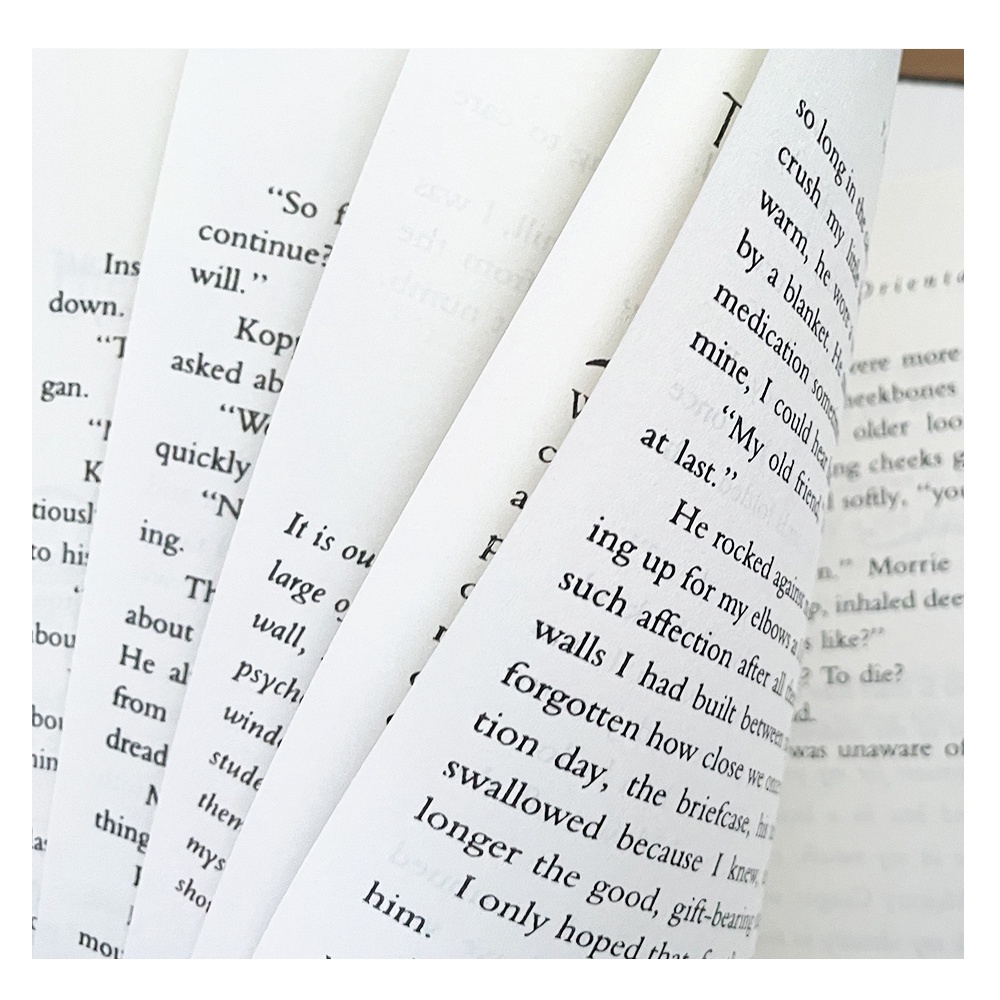 Ins
down.
"T
gan.
K
tiousl
to his
bou
mou
"So f
continue?
will."
Kop
asked ab
"We
quickly
"N
ing.
Th
about
He al
from
dread
thing
It is ou
large o
wall,
psych
wind
stude
them
mys
shou
T
so long in the
crush my little
warm, he wore a
by a blanket. He
medication
mine, I could hear
"My old friend
at last."
He rocked against
ing up for my elbows
such affection after all
walls I had built between
forgotten how close we
tion day, the briefcase, his
swallowed because I knew,
longer the good, gift-bearing
I only hoped that
him.
Orienta
were more
heekbones
older loo
ing cheeks g
softly, "you
n." Morrie
inhaled dee
s like?"
? To die?
d.
was unaware of